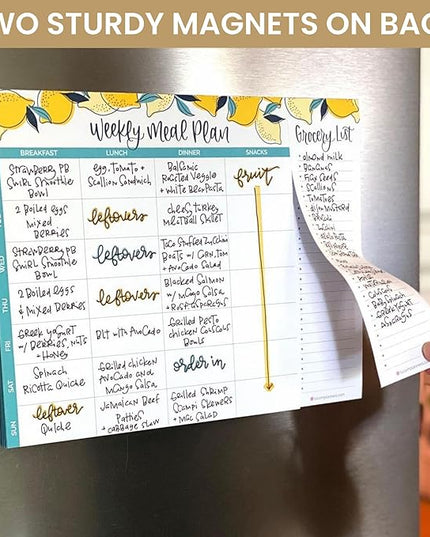 WO STURDY MAGNETS ON BAC
Weekly Meal Plan
Grocery List
BREAKFAST LUNCH DINNER SNACKS
Strawberry PB
Swirl Smoothie
Bowl
egg, Tomato +
Scallion Sandwich
Balsamic
Roasted Veggie
+ White Bean Pasta
fruit
2 Boiled eggs
Mixed
Berries
leftovers
cheesy turkey
Meatball Skillet
WED
Strawberry PB
Swirl Smoothie
Bowl
leftovers
Taco Stuffed Zucchini
Boats w/ Corn, Tom
+ Avocado Salad
THU
2 Boiled Eggs
& Mixed Berries
leftovers
Salmon
w/ Mango Salsa
+ Roast Asparagus
FRI
Greek yogurt
w/ Berries, Nuts
+ Honey
BLT with Avocado
Grilled Pesto
chicken Couscous
Bowls
SAT
Spinach
Ricotta Quiche
Grilled chicken
Avocado and
Mango Salsa
order in
SUN
leftover
Quiche
Jamaican Beef
Patties
+ cabbage slaw
Grilled Shrimp
Scampi Skewers
+ Mac Salad
almond milk
Bananas
Flax Seeds
Scallions
Tomatoes
Dijon Mustard